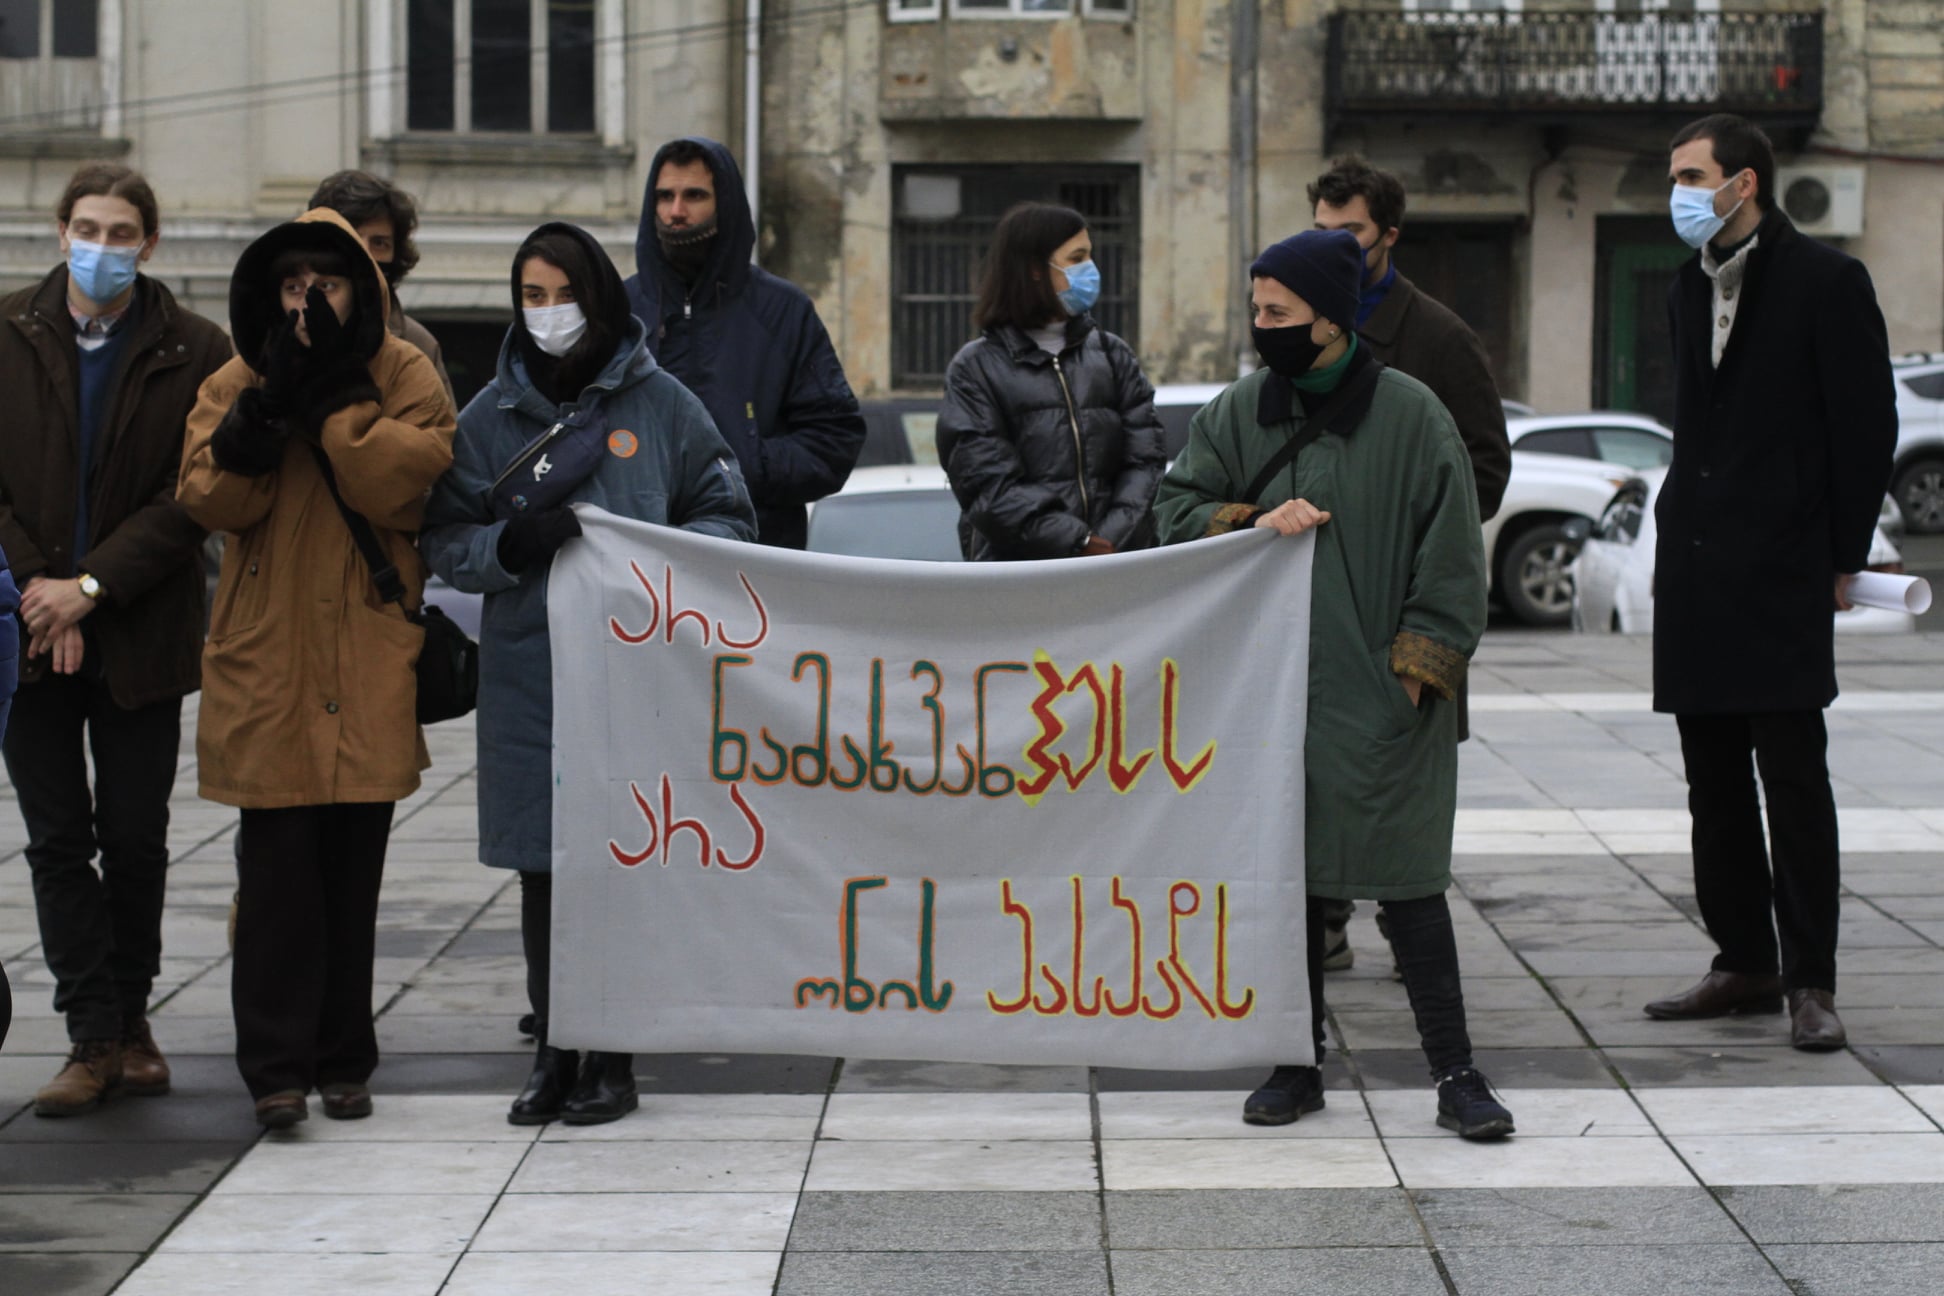 არა
ნამახვანჰესს
არა
ონის კასკადს